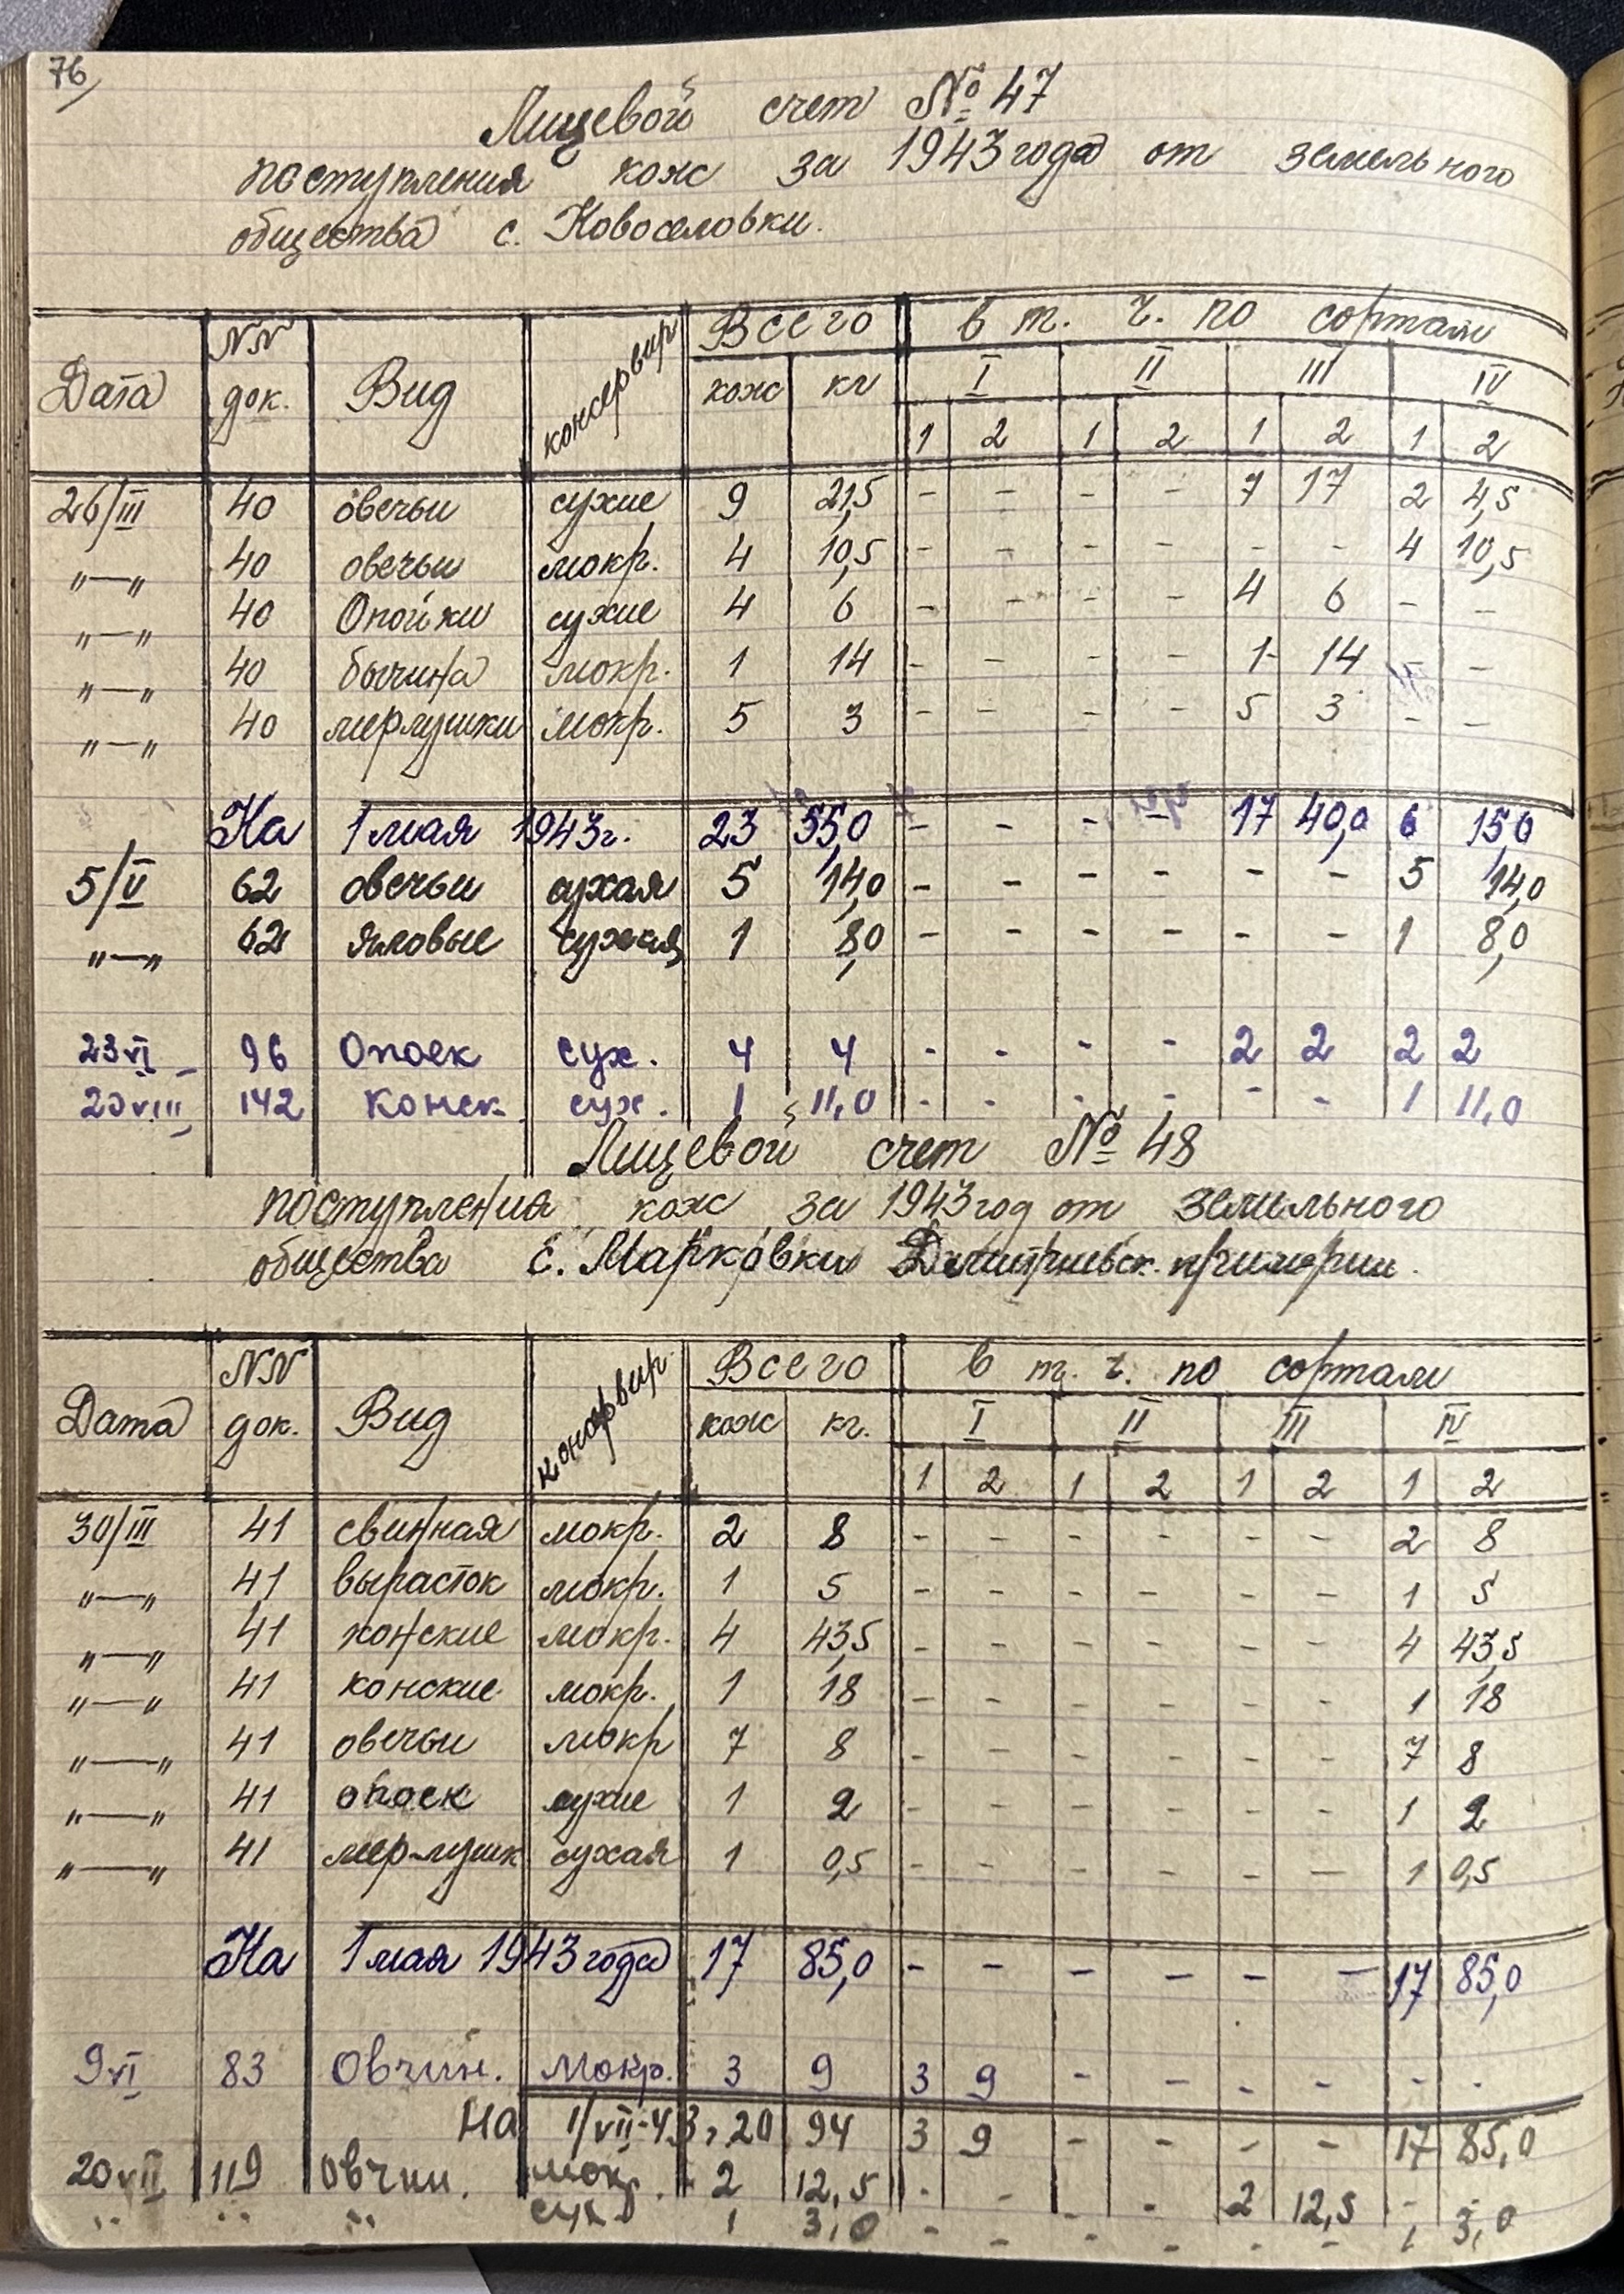 76
Лицевой счет № 47
поступления кож за 1943 года от земельного
общества с. Новоселовки.
Дата NN док. Вид консервир Всего в т. ч. по сортам
кож кг I II III IV
1 2 1 2 1 2 1 2
26/III 40 овечьи сухие 9 21,5 - - - - 7 17 2 4,5
"—" 40 овечьи мокр. 4 10,5 - - - - - - 4 10,5
"—" 40 Опойки сухие 4 6 - - - - 4 6 - -
"—" 40 бычина мокр. 1 14 - - - - 1 14 - -
"—" 40 мерлушки мокр. 5 3 - - - - 5 3 - -
На 1 мая 1943 г. 23 55,0 - - - - 17 40,0 6 15,0
5/V 62 овечьи сухая 5 14,0 - - - - - - 5 14,0
"—" 62 яловые сухая 1 8,0 - - - - - - 1 8,0
23 VI 96 Опоек сух. 4 4 - - - - 2 2 2 2
20 VIII 142 Конск. сух. 1 11,0 - - - - - - 1 11,0
Лицевой счет № 48
поступления кож за 1943 год от земельного
общества С. Марковки Дмитриевск. примерии.
Дата NN док. Вид консервир. Всего в т. ч. по сортам
кож кг. I II III IV
1 2 1 2 1 2 1 2
30/III 41 свинная мокр. 2 8 - - - - - - 2 8
"—" 41 вырасток мокр. 1 5 - - - - - - 1 5
"—" 41 конские мокр. 4 43,5 - - - - - - 4 43,5
"—" 41 конские мокр. 1 18 - - - - - - 1 18
"—" 41 овечьи мокр 7 8 - - - - - - 7 8
"—" 41 опоек сухие 1 2 - - - - - - 1 2
"—" 41 мерлушк сухая 1 0,5 - - - - - - 1 0,5
На 1 мая 1943 года 17 85,0 - - - - - - 17 85,0
9 VI 83 Овчин. мокр. 3 9 3 9 - - - - - -
На 1/VII-43, 20 94 3 9 - - - - 17 85,0
20 VII 119 Овчин. мок. 2 12,5 - - - - 2 12,5 - -
" " " сух. 1 3,0 - - - - - - 1 3,0